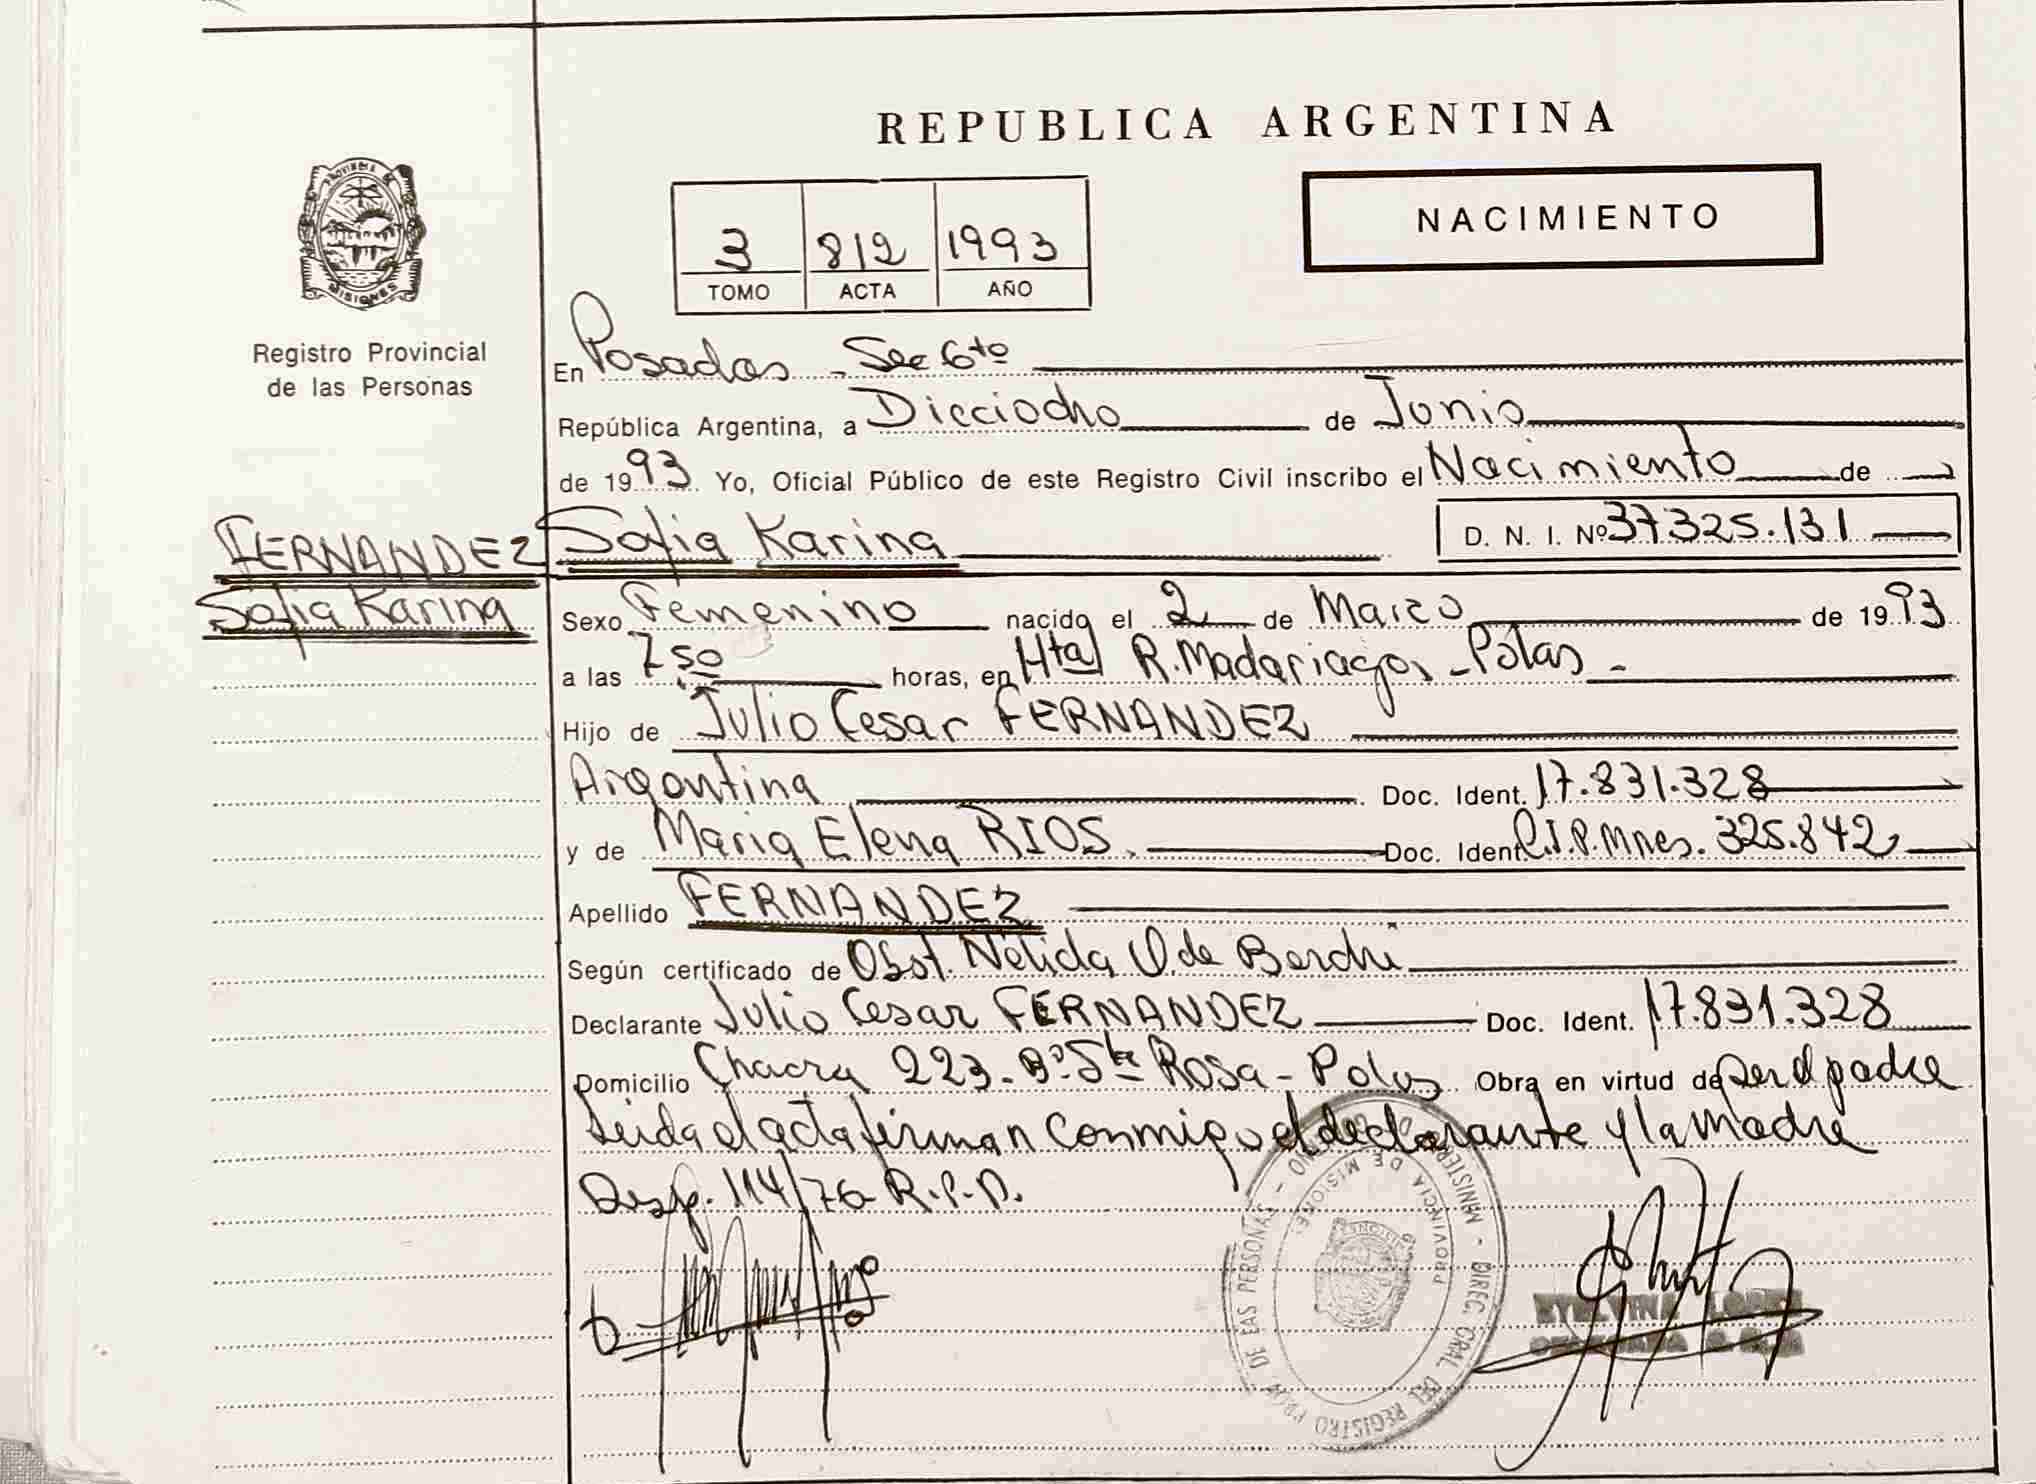 REPUBLICA ARGENTINA
NACIMIENTO
3 812 1993
TOMO ACTA AÑO
PROVINCIA DE
MISIONES
Registro Provincial
de las Personas
En Posadas - Sec 6to
República Argentina, a Dieciocho de Junio
de 1993 Yo, Oficial Público de este Registro Civil inscribo el Nacimiento de
FERNANDEZ
Sofia Karina
Sofia Karina D. N. I. Nº 37325.131
Sexo Femenino nacido el 2 de Marzo de 1993
a las 7,50 horas, en Htal R. Madariaga - Pdas -
Hijo de Julio Cesar FERNANDEZ
Argentina Doc. Ident. 17.831.328
y de Maria Elena RIOS. Doc. Ident. C.I.P.Mnes. 325.842
Apellido FERNANDEZ
Según certificado de Obst. Nélida O. de
Declarante Julio Cesar FERNANDEZ Doc. Ident. 17.831.328
Domicilio Chacra 223. Bº Sta Rosa - Pdas Obra en virtud de ser el padre
Leida el acta firman conmigo el declarante y la Madre
Desp. 114/76 R.P.P.
MINISTERIO DE GOBIERNO - DIREC. GRAL DEL REGISTRO PROV. DE LAS PERSONAS -
PROVINCIA DE MISIONES